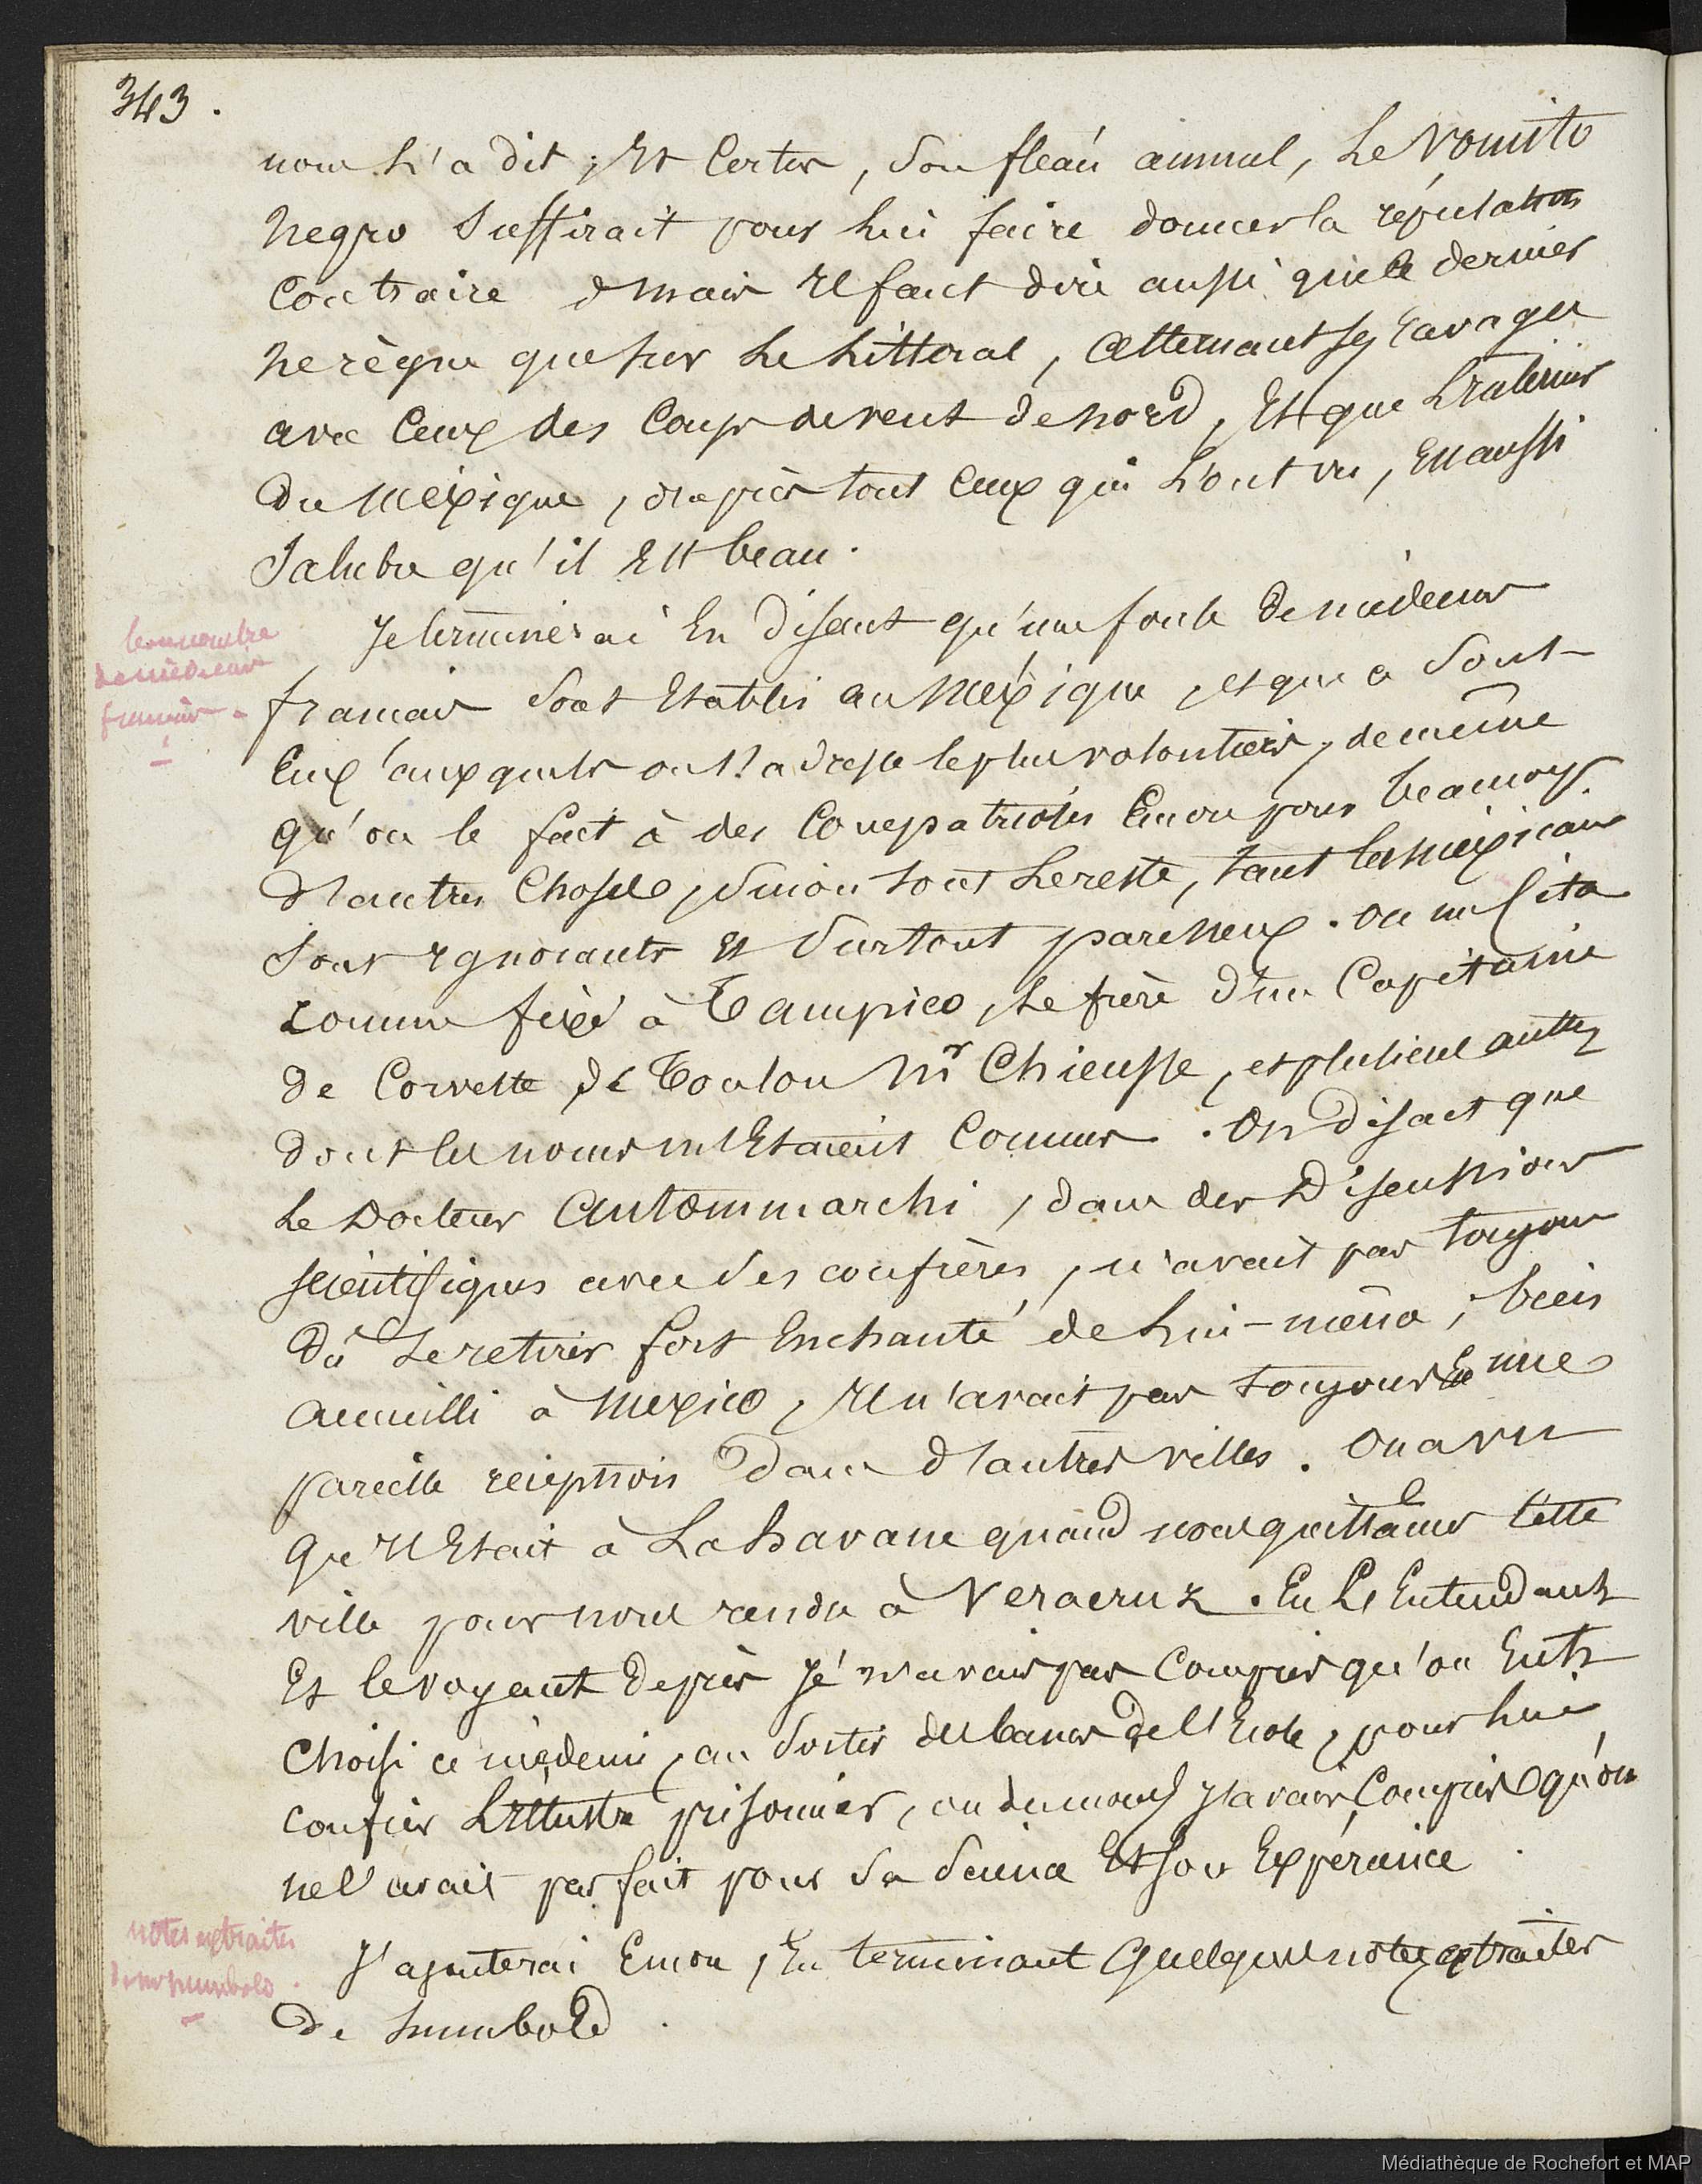 343.
nous l'a dit ; Et Certes, Son fléau annuel, Le Vomito
Negro Suffirait pour lui faire donner la réputation
Contraire ; mais Il faut dire aussi que ce dernier
ne règne que sur Le Littoral, alternant ses ravages
avec Ceux des Coups de vent de nord, Et que L'intérieur
Du Mexique, d'après tout Ceux qui L'ont vu, Est aussi
Salubre qu'il Est beau.
Bon nombre
de médecins
français -
Je terminerai En disant qu'une foule de médecins
français Sont Etablis au Mexique, et que ce Sont
Eux auxquels on s'adresse le plus volontiers, de même
qu'on le fait à des Compatriotes Encore pour beaucoup
d'autres Choses, Sinon tout Le reste, tant les mexicains
Sont Ignorants et Surtout paresseux. On me Cita
comme fixé à Tampico, Le frère d'un Capitaine
de Corvette de Toulon Mr Chieusse, et plusieurs autres
dont les noms m'Etaient Connus. On disait que
Le Docteur Antommarchi, dans des Discussions
scientifiques avec Ses confrères, n'avait pas toujours
Dû Se retirer fort Enchanté de Lui-même ; bien
accueilli à Mexico, Il n'avait pas toujours Eu une
pareille réception dans d'autres villes. On a vu
qu'Il Etait à La havane quand nous quittames Cette
ville pour nous rendre à Veracruz. En L'Entendant
Et le voyant De près Je n'avais pas Compris qu'on Eut
Choisi ce médecin, au Sortir des bancs de l'Ecole, pour lui
confier L'Illustre prisonnier, ou du moins J'avais Compris qu'on
ne l'avait pas fait pour Sa Science Et Son Expérience.
notes extraites
de humbold.
J'ajouterai Encore, En terminant Quelques notes extraites
De humbold.
Médiathèque de Rochefort et MAP